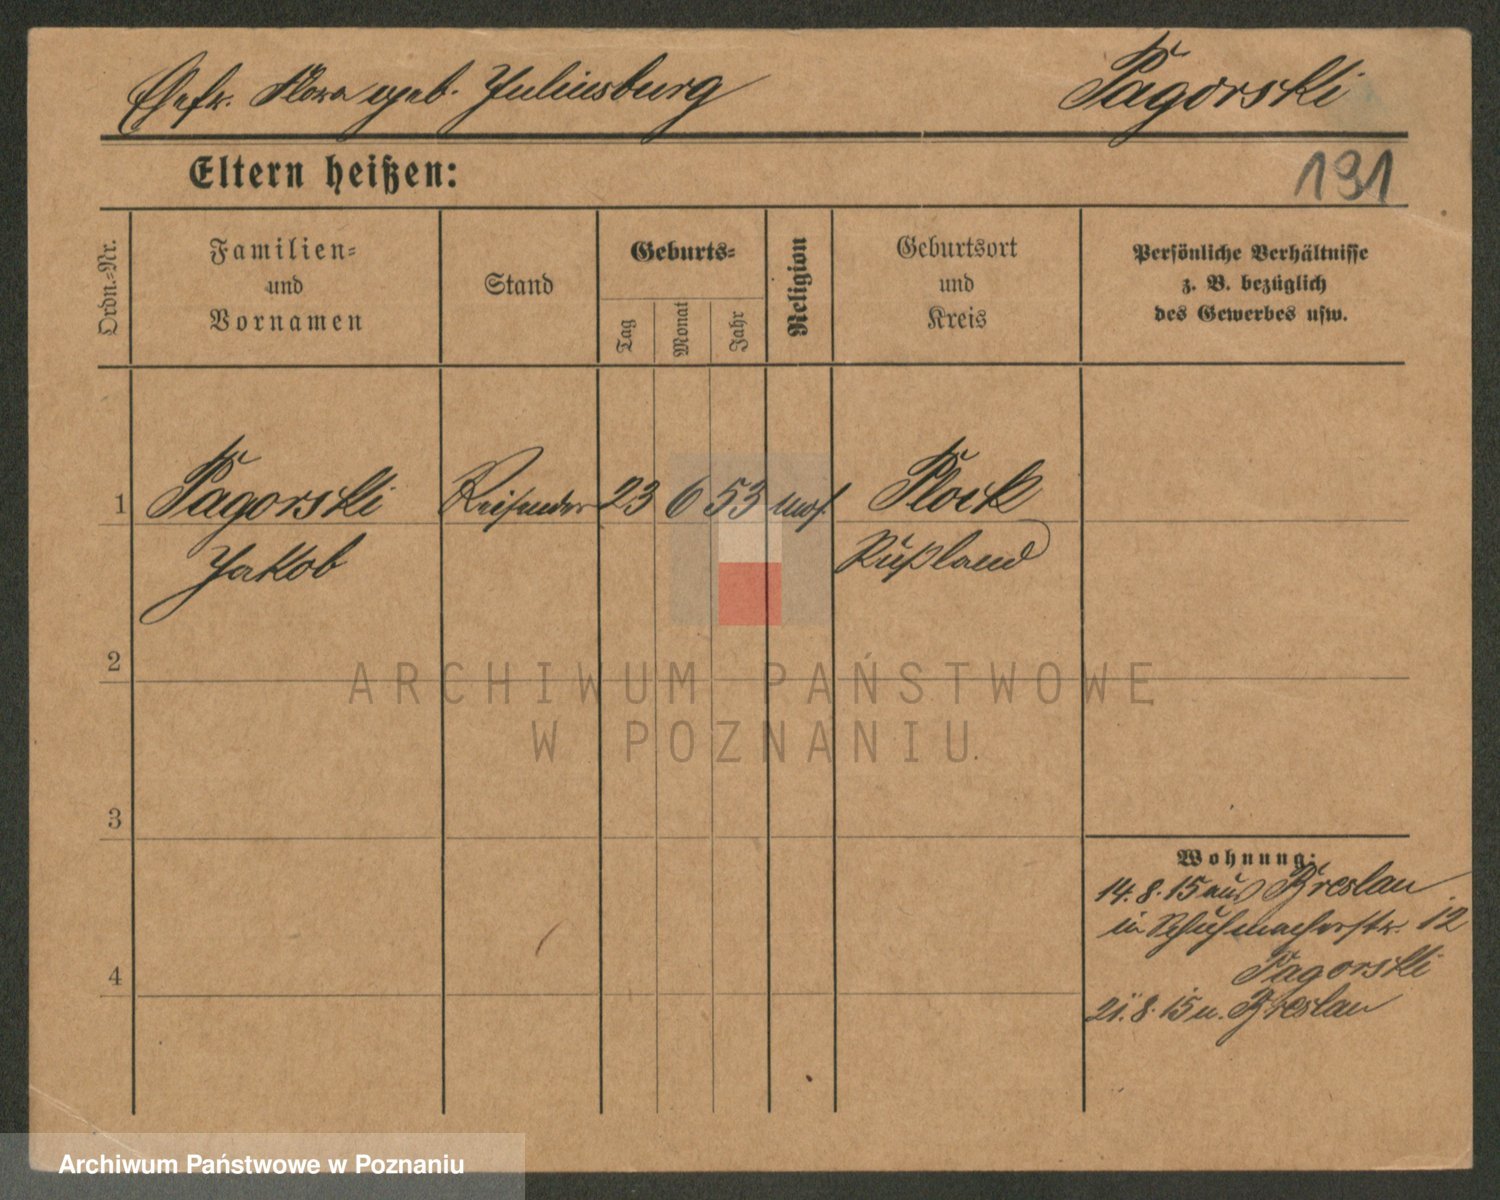 Ehefr. Flora geb. Juliusburg Pagorski
Eltern heißen:
191
Ordn.-Nr.
Familien- und Vornamen
Stand
Geburts-
Tag
Monat
Jahr
Religion
Geburtsort und Kreis
Persönliche Verhältnisse
z. B. bezüglich
des Gewerbes usw.
1 Pagorski Reisender 23 6 53 mos. Plock
Jakob Rußland
2
3
4
Wohnung:
14. 8. 15 aus Breslau
in Schuhmacherstr. 12
Pagorski
21. 8. 15 n. Breslau
ARCHIWUM PAŃSTWOWE
W POZNANIU
Archiwum Państwowe w Poznaniu